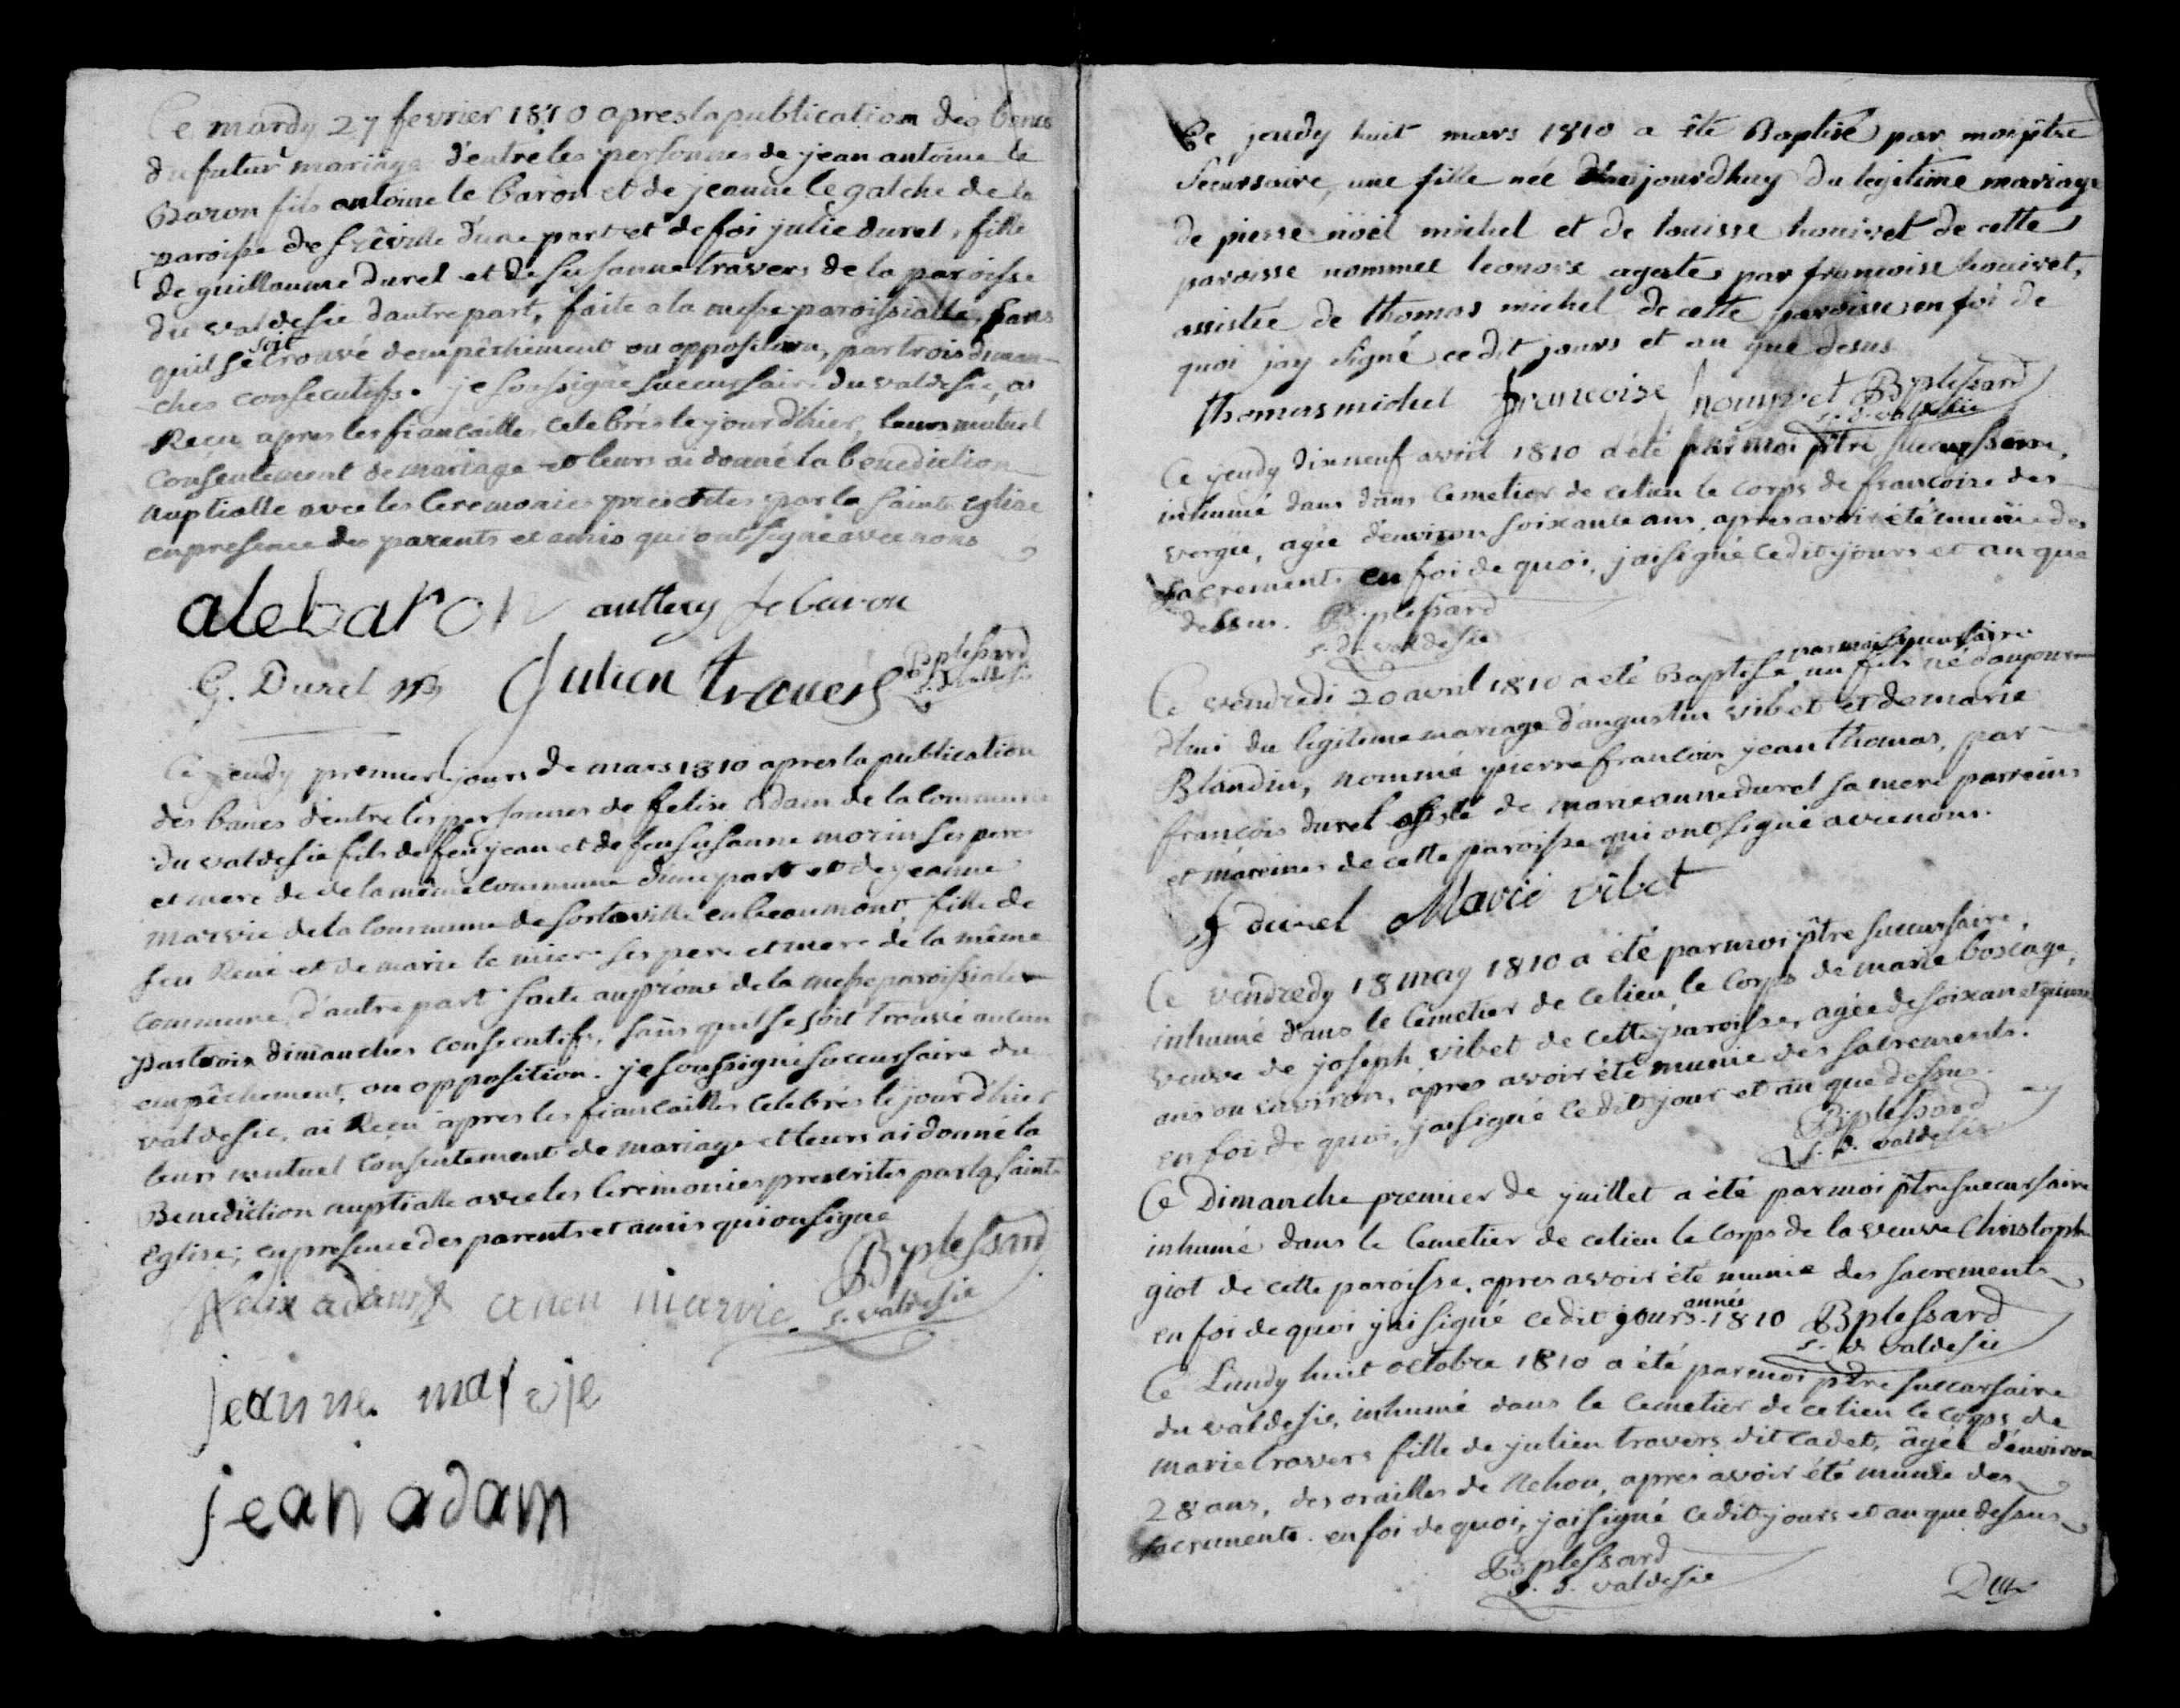 Ce mardy 27 fevrier 1810 apres la publication des bancs
du futur mariage d'entre les personnes de jean antoine le
Baron fils antoine le baron et de jeanne le galche de la
paroisse de frêville d'une part et de foi julie durel, fille
de guillaume durel et de susanne travers de la paroisse
du valdesie dautre part, faite a la messe paroissialle, sans
qu'il se soit trouvé dempêchement ou opposition, par trois diman-
ches consecutifs. je soussigné succursaire du valdesie, ai
Reçu apres les fiancailles celebrés le jour d'hier, leurs mutuel
consentement de mariage et leurs ai donné la benediction
nuptialle avec les ceremonies prescrites par la sainte Eglise
en presence des parents et amis qui ont signé avec nous
alebaron anthery lebaron
G. Durel Julien travers Bplessard
s. d. valdesie
Ce jeudy premier jours de mars 1810 apres la publication
des bancs d'entre les personnes de felix adam de la commune
du valdesie fils de feu jean et de feu susanne morin ses pere
et mere de de la même commune d'une part et de jeanne
marvie de la commune de sortoville en beaumont, fille de
feu René et de marie le miere ses pere et mere de la même
commune, d'autre part faite au prône de la messe paroissiale
par trois dimanches consecutifs, sans qu'il se soit trouvé aucun
empêchement, ou opposition. je soussigné succursaire du
valdesie, ai Reçu apres les fiancailles celebrés le jour d'hier
leurs mutuel consentement de mariage et leurs ai donné la
Benediction nuptialle avec les ceremonies prescrites par la sainte
Eglise; en presence des parents et amis qui on signé
felix adam marvie Bplessard
s. valdesie
jeanne marvie
jean adam
Ce jeudy huit mars 1810 a êté Baptisé par moi ptre
sécursaire, une fille née aujourdhuy du legitime mariage
de pierre nöel michel et de louisse houivet de cette
paroisse nommee leonore agate par francoise houivet,
assistée de thomas michel de cette paroisse en foi de
quoi jay signé ce dit jours et an que desus
thomas michel francoise houyvet Bplessard
s. d. valdesie
Ce jeudy dixneuf avril 1810 a été par moi ptre succursaire,
inhumé dans dans cemetier de celieu le corps de francoise des
vergie, agée d'environ soixante ans, apres avoir été munie des
sacrements en foi de quoi, jai signé ce dit jours et an que
dessus. Bplessard
s. d. valdesie
par moi succursaire
Ce vendredi 20 avril 1810 a été Baptisé, un fils né daujour
dhui du legitime mariage d'augustin vibet et de marie
Blandin, nommé pierre francois jean thomas, par
francois durel assisté de marie anne durel sa mere parreins
et mareines de cette paroisse qui ont signé avec nous.
f durel Marie vibet
Ce vendredy 18 may 1810 a été par moi ptre succursaire,
inhumé dans le Cemetier de celieu le corps de marie boscage,
veuve de joseph vibet de cette paroisse, agée de soixant et quinze
ans ou environ, apres avoir été munie des sacrements.
en foi de quoi, jai signé ce dit jour et an que dessus.
Bplessard
s. d. valdesie
Ce Dimanche premier de juillet a été par moi ptre succursaire
inhumé dans le Cemetier de celieu le corps de la veuve Christophe
giot de cette paroisse. apres avoir été munie des sacrements
en foi de quoi jai signé ce dit jours année 1810 Bplessard
s. d. valdesie
Ce Lundy huit octobre 1810 a été par moi ptre succursaire
du valdesie, inhumé dans le Cemetier de celieu le corps de
marie travers fille de julien travers dit cadet, âgée d'environ
28 ans, des orailles de Nehou, apres avoir été munie des
sacrements. en foi de quoi, jai signé ce dit jours et an que dessus
Bplessard
s. d. valdesie